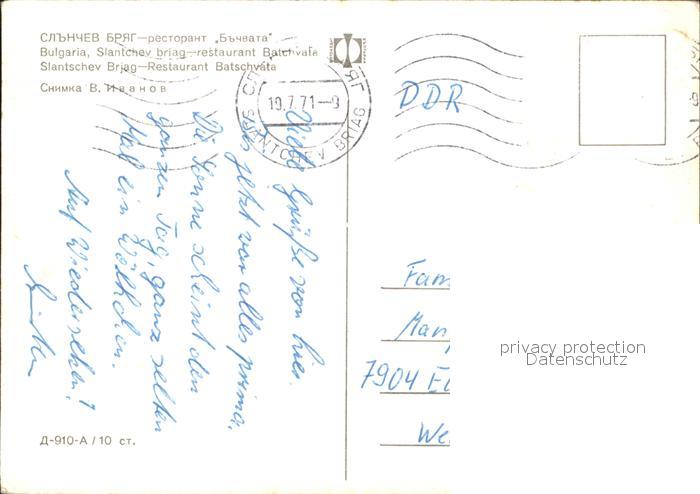 СЛЪНЧЕВ БРЯГ—ресторант „Бъчвата"
Bulgaria, Slantchev briag—restaurant Batchvata
Slantschev Briag—Restaurant Batschvata
Снимка В. Иванов
19.7.71-9
SLANTCHEV BRIAG
DDR
Viele Grüße von hier.
Bis jetzt war alles prima.
Die Sonne scheint den
ganzen Tag, ganz selten
mal ein Wölkchen.
Auf Wiedersehen!
Fam
Man
7904 El
We
privacy protection
Datenschutz
Д-910-А / 10 ст.